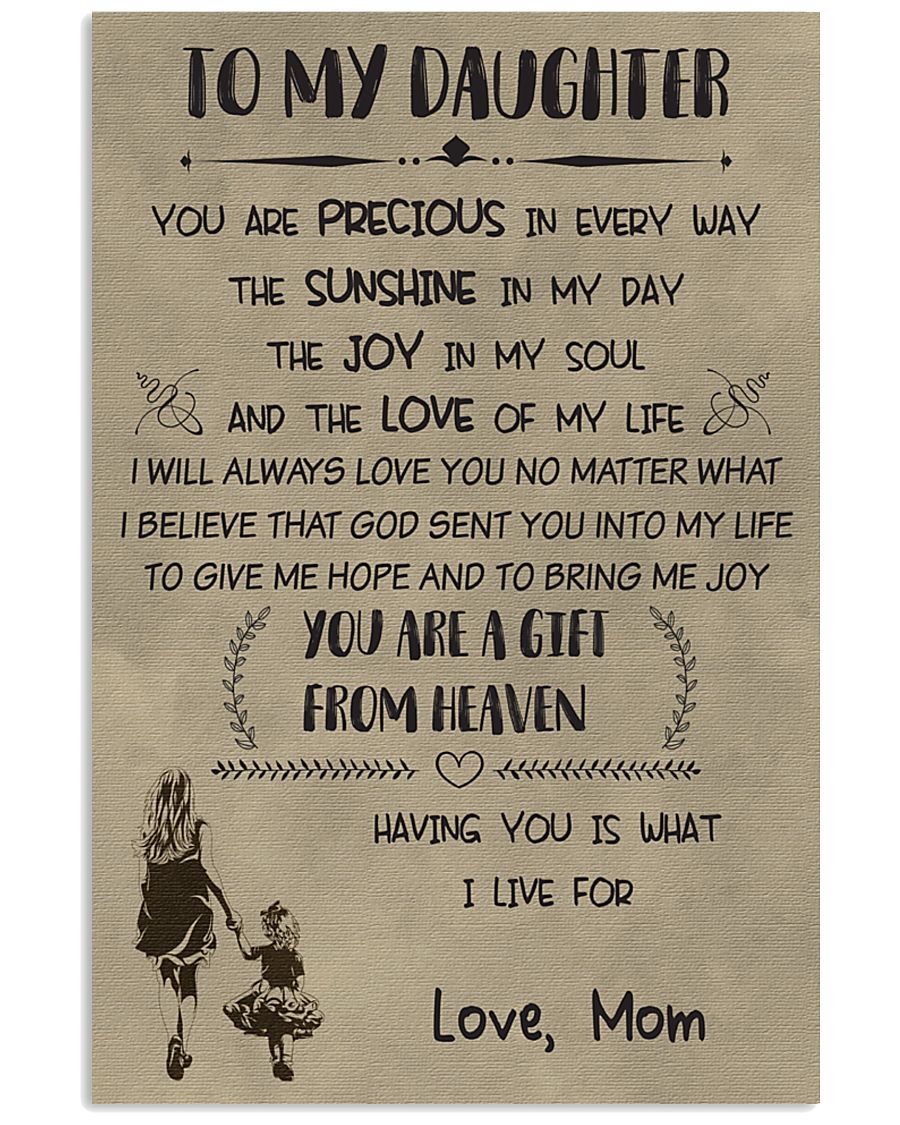 TO MY DAUGHTER
YOU ARE PRECIOUS IN EVERY WAY
THE SUNSHINE IN MY DAY
THE JOY IN MY SOUL
AND THE LOVE OF MY LIFE
I WILL ALWAYS LOVE YOU NO MATTER WHAT
I BELIEVE THAT GOD SENT YOU INTO MY LIFE
TO GIVE ME HOPE AND TO BRING ME JOY
YOU ARE A GIFT
FROM HEAVEN
HAVING YOU IS WHAT
I LIVE FOR
Love, Mom